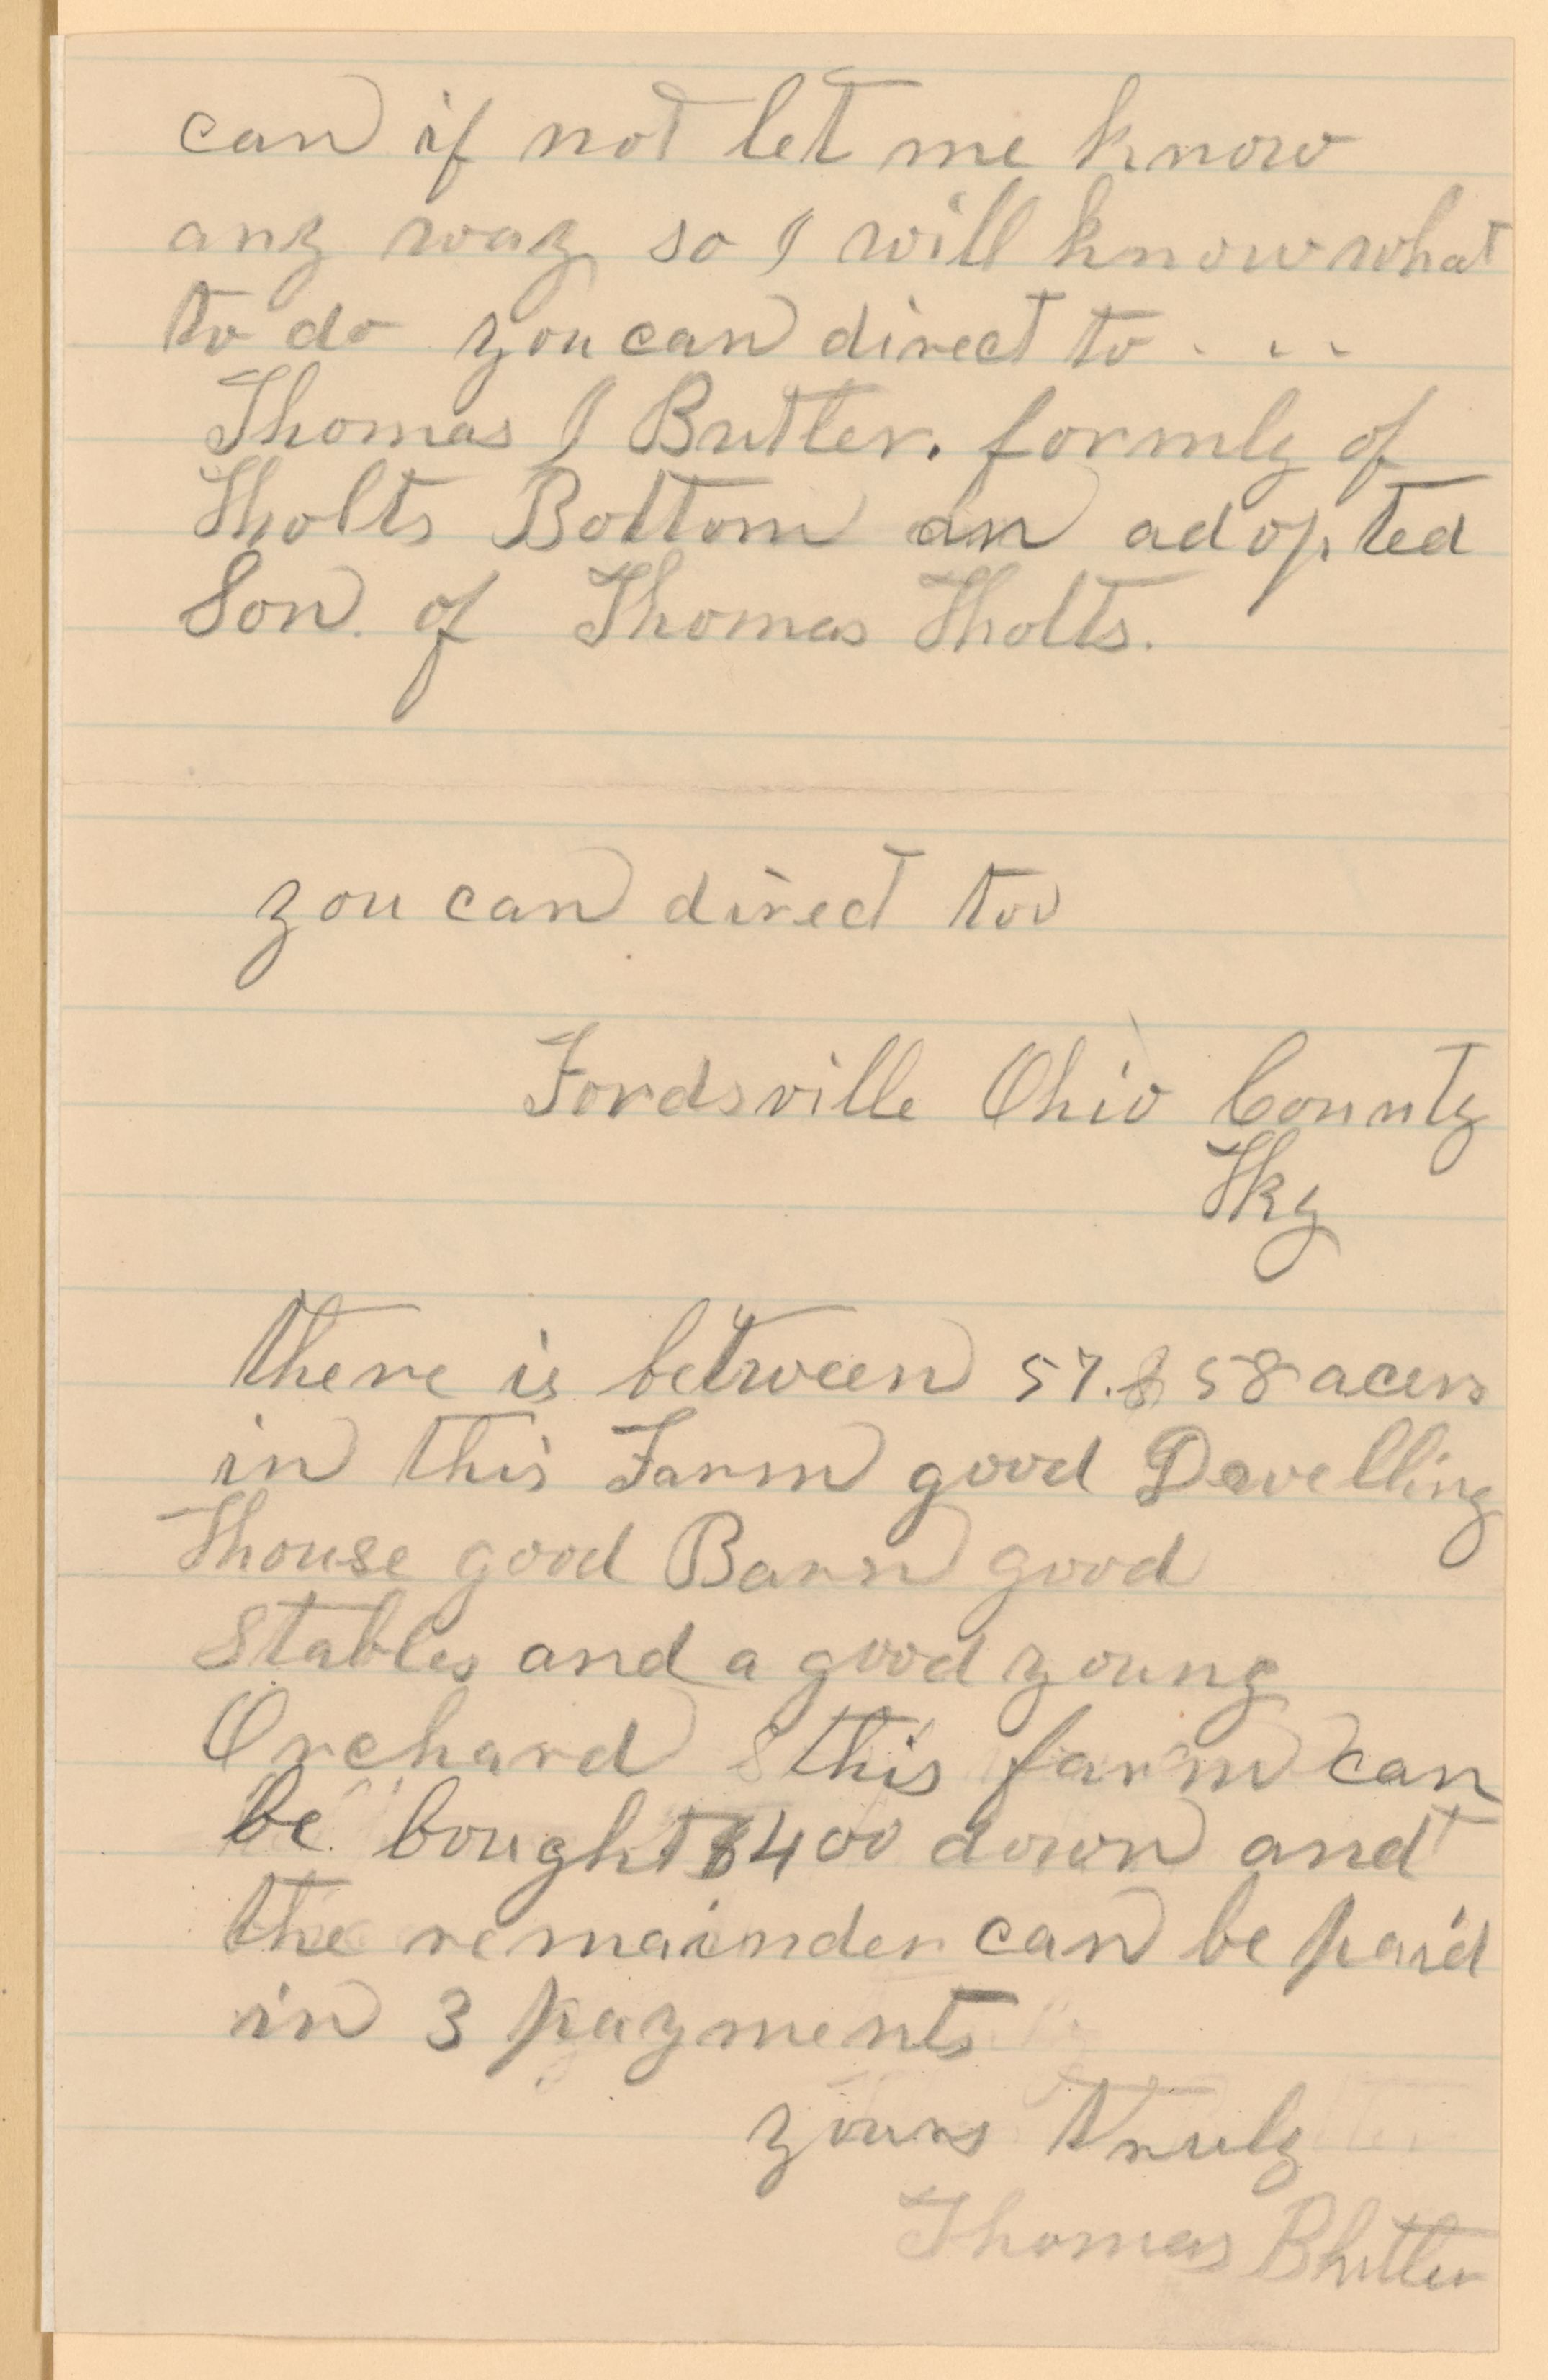 can if not let me know
any way so I will know what
to do you can direct to . . .
Thomas J Butler. formly of
Holts Bottom an adopted
Son. of Thomas Holts.
you can direct too
Fordsville Ohio County
Ky
there is between 57. & 58 acers
in this Farm good Dwelling
House good Barn good
Stables and a good young
Orchard & this farm can
be bought $400 down and
the remainder can be paid
in 3 payments
yours truly
Thomas Butler